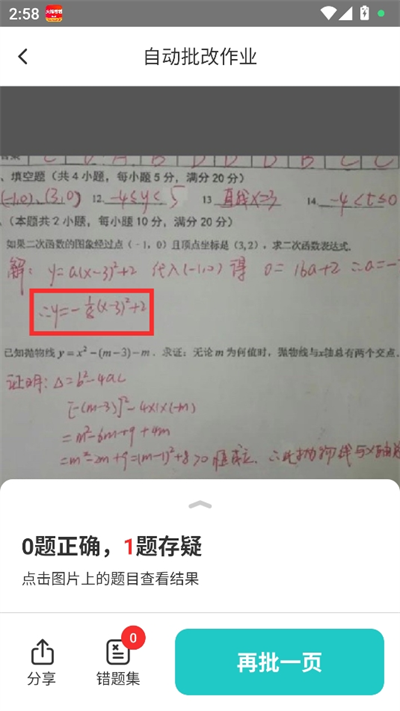 2:58
自动批改作业
答案 C C A B D D D B C C
、填空题（共4小题，每小题5分，满分20分）
(-1,0), (3,0) 12. -4≤y<5 13 直线x=3 14. -4<t≤0
.（本题共2小题，每小题10分，满分20分）
如果二次函数的图象经过点（-1，0）且顶点坐标是（3,2），求二次函数表达式.
解： y=a(x-3)²+2 代入(-1,0) 得 0=16a+2 ∴a=-
∴y=-⅛(x-3)²+2
已知抛物线 y=x²-(m-3)-m．求证：无论m为何值时，抛物线与x轴总有两个交点.
证明：Δ=b²-4ac
[-(m-3)]²-4×1×(-m)
=m²-6m+9+4m
=m²-2m+9=(m-1)²+8>0 恒成立. ∴此抛物线与x轴
0题正确，1题存疑
点击图片上的题目查看结果
分享
0
错题集
再批一页